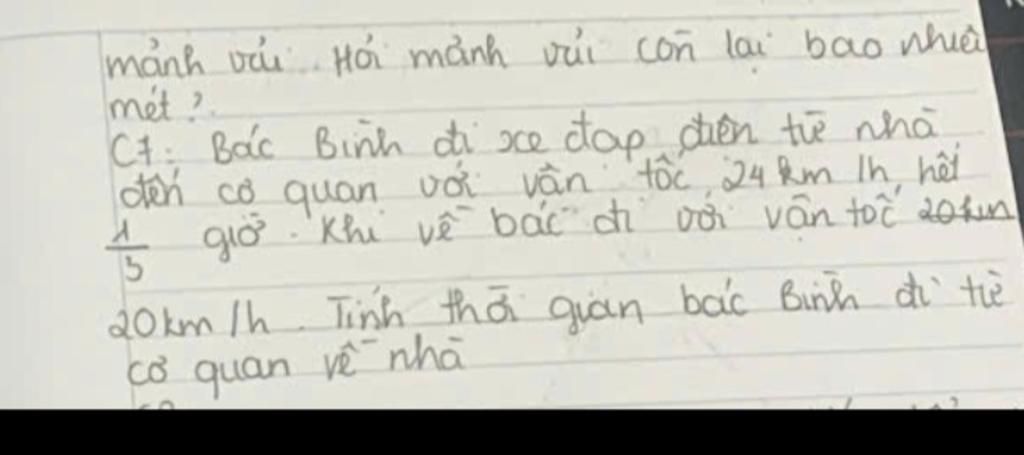 mảnh vải. Hỏi mảnh vải còn lại bao nhiê
mét?
C7: Bác Bình đi xe đạp điện từ nhà
đến cơ quan với vân tốc 24km/h hết
1/5 giờ. Khi về bác đi với vân tốc 20km
20km/h. Tính thời gian bác Bình đi từ
cơ quan về nhà